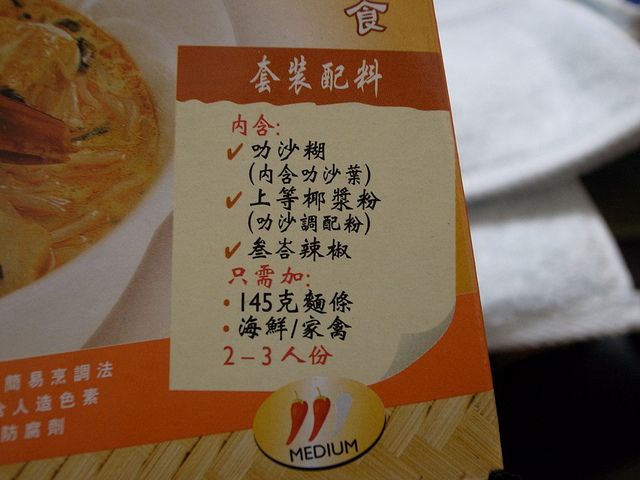 食
套裝配料
内含:
✓ 叻沙糊
(内含叻沙葉)
✓ 上等椰漿粉
(叻沙調配粉)
✓ 叁峇辣椒
只需加:
• 145克麵條
• 海鮮/家禽
2-3人份
簡易烹調法
含人造色素
防腐劑
MEDIUM